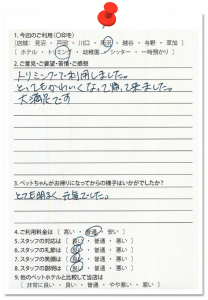 1.今回のご利用（○印を）
［店舗： 見沼 ・ 戸田 ・ 川口 ・ 所沢 ・ 越谷 ・ 与野 ・ 草加 ］
［ ホテル ・ トリミング ・ 幼稚園 ・ シッター ・ 一時預かり ］
2.ご意見・ご要望・苦情・ご感想
トリミングで利用しました。
とってもかわいくなって帰って来ました。
大満足です
3.ペットちゃんがお帰りになってからの様子はいかがでしたか？
とても明るく、元気でした。
4.ご利用料金は ［ 高い ・ 普通 ・ 安い ］
5.スタッフの対応は ［ 良い ・ 普通 ・ 悪い ］
6.スタッフの礼節は ［ 良い ・ 普通 ・ 悪い ］
7.スタッフの笑顔は ［ 良い ・ 普通 ・ 悪い ］
8.スタッフの説明は ［ 良い ・ 普通 ・ 悪い ］
9.他のペットホテルと比較して当店は
［ 非常に良い ・ 良い ・ 普通 ・ やや悪い ・ 悪い ］